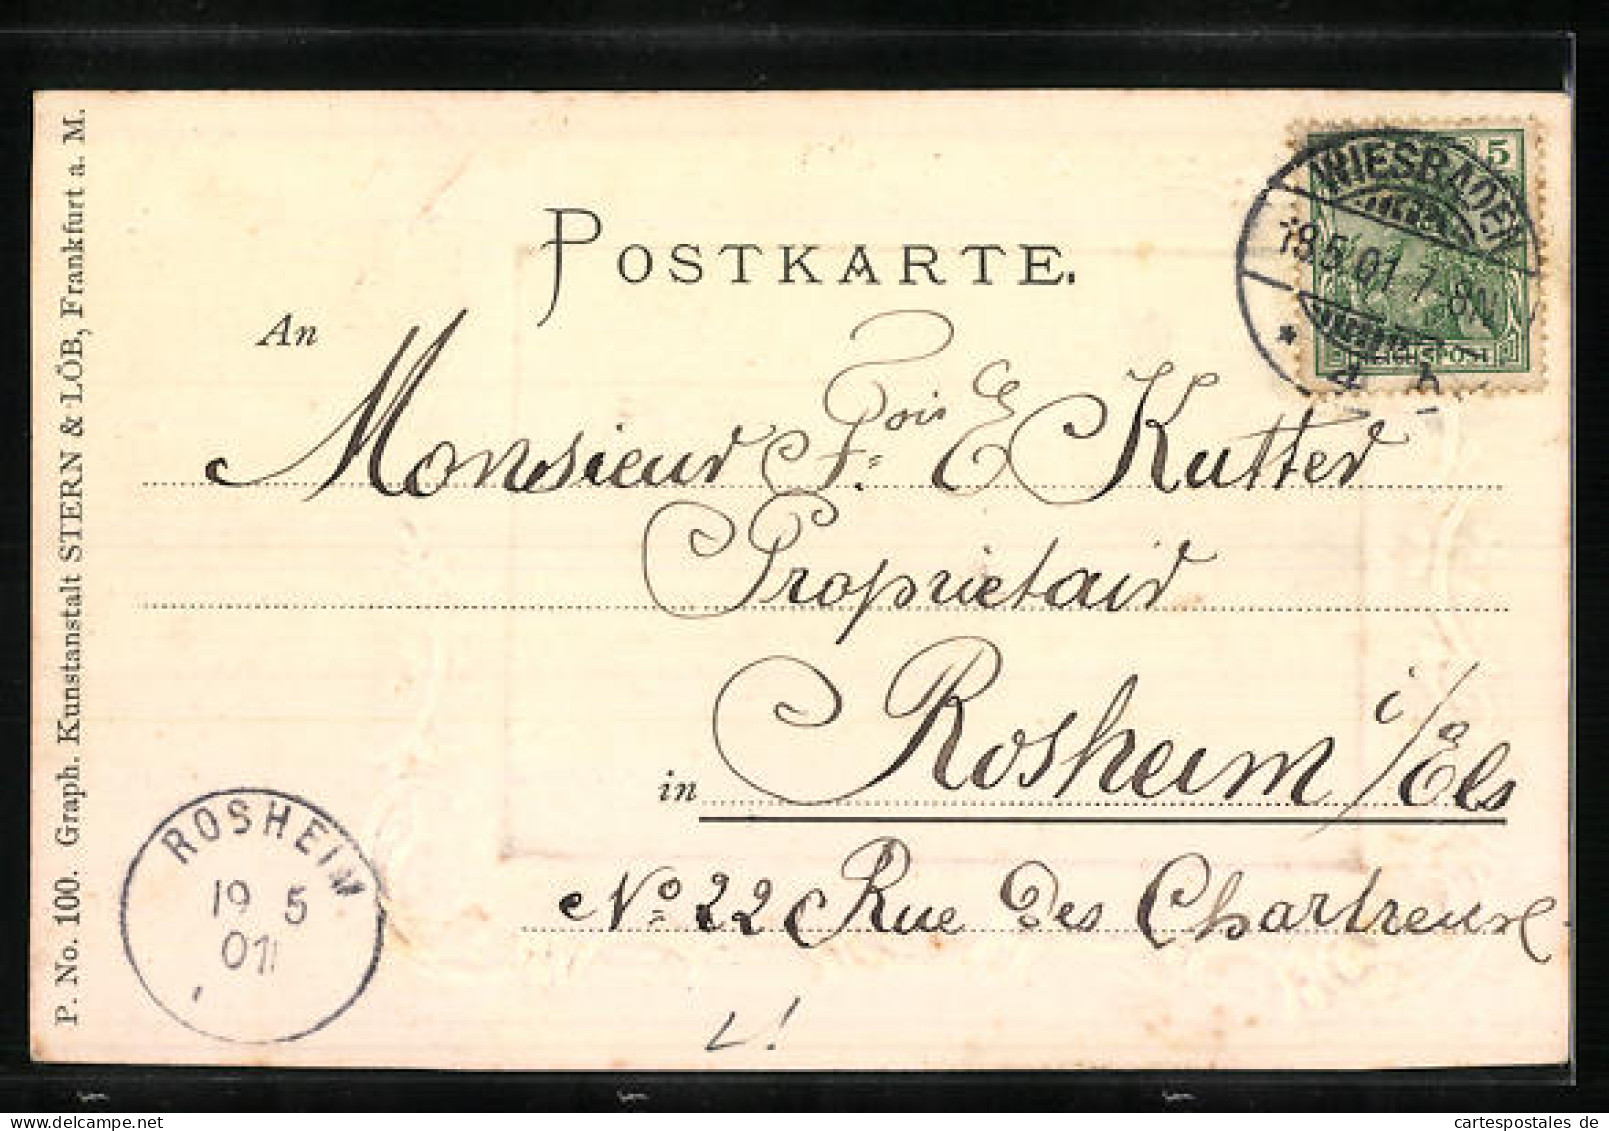 P. No. 100. Graph. Kunstanstalt STERN & LÖB, Frankfurt a. M.
POSTKARTE.
5
WIESBADEN
18.5.01. 7-8N
REICHSPOST
An
Monsieur Kutter
Proprietair
in Rosheim i/Els
No 22 Rue Des Chartreuse
ROSHEIM
19 5
01
cartespostales de